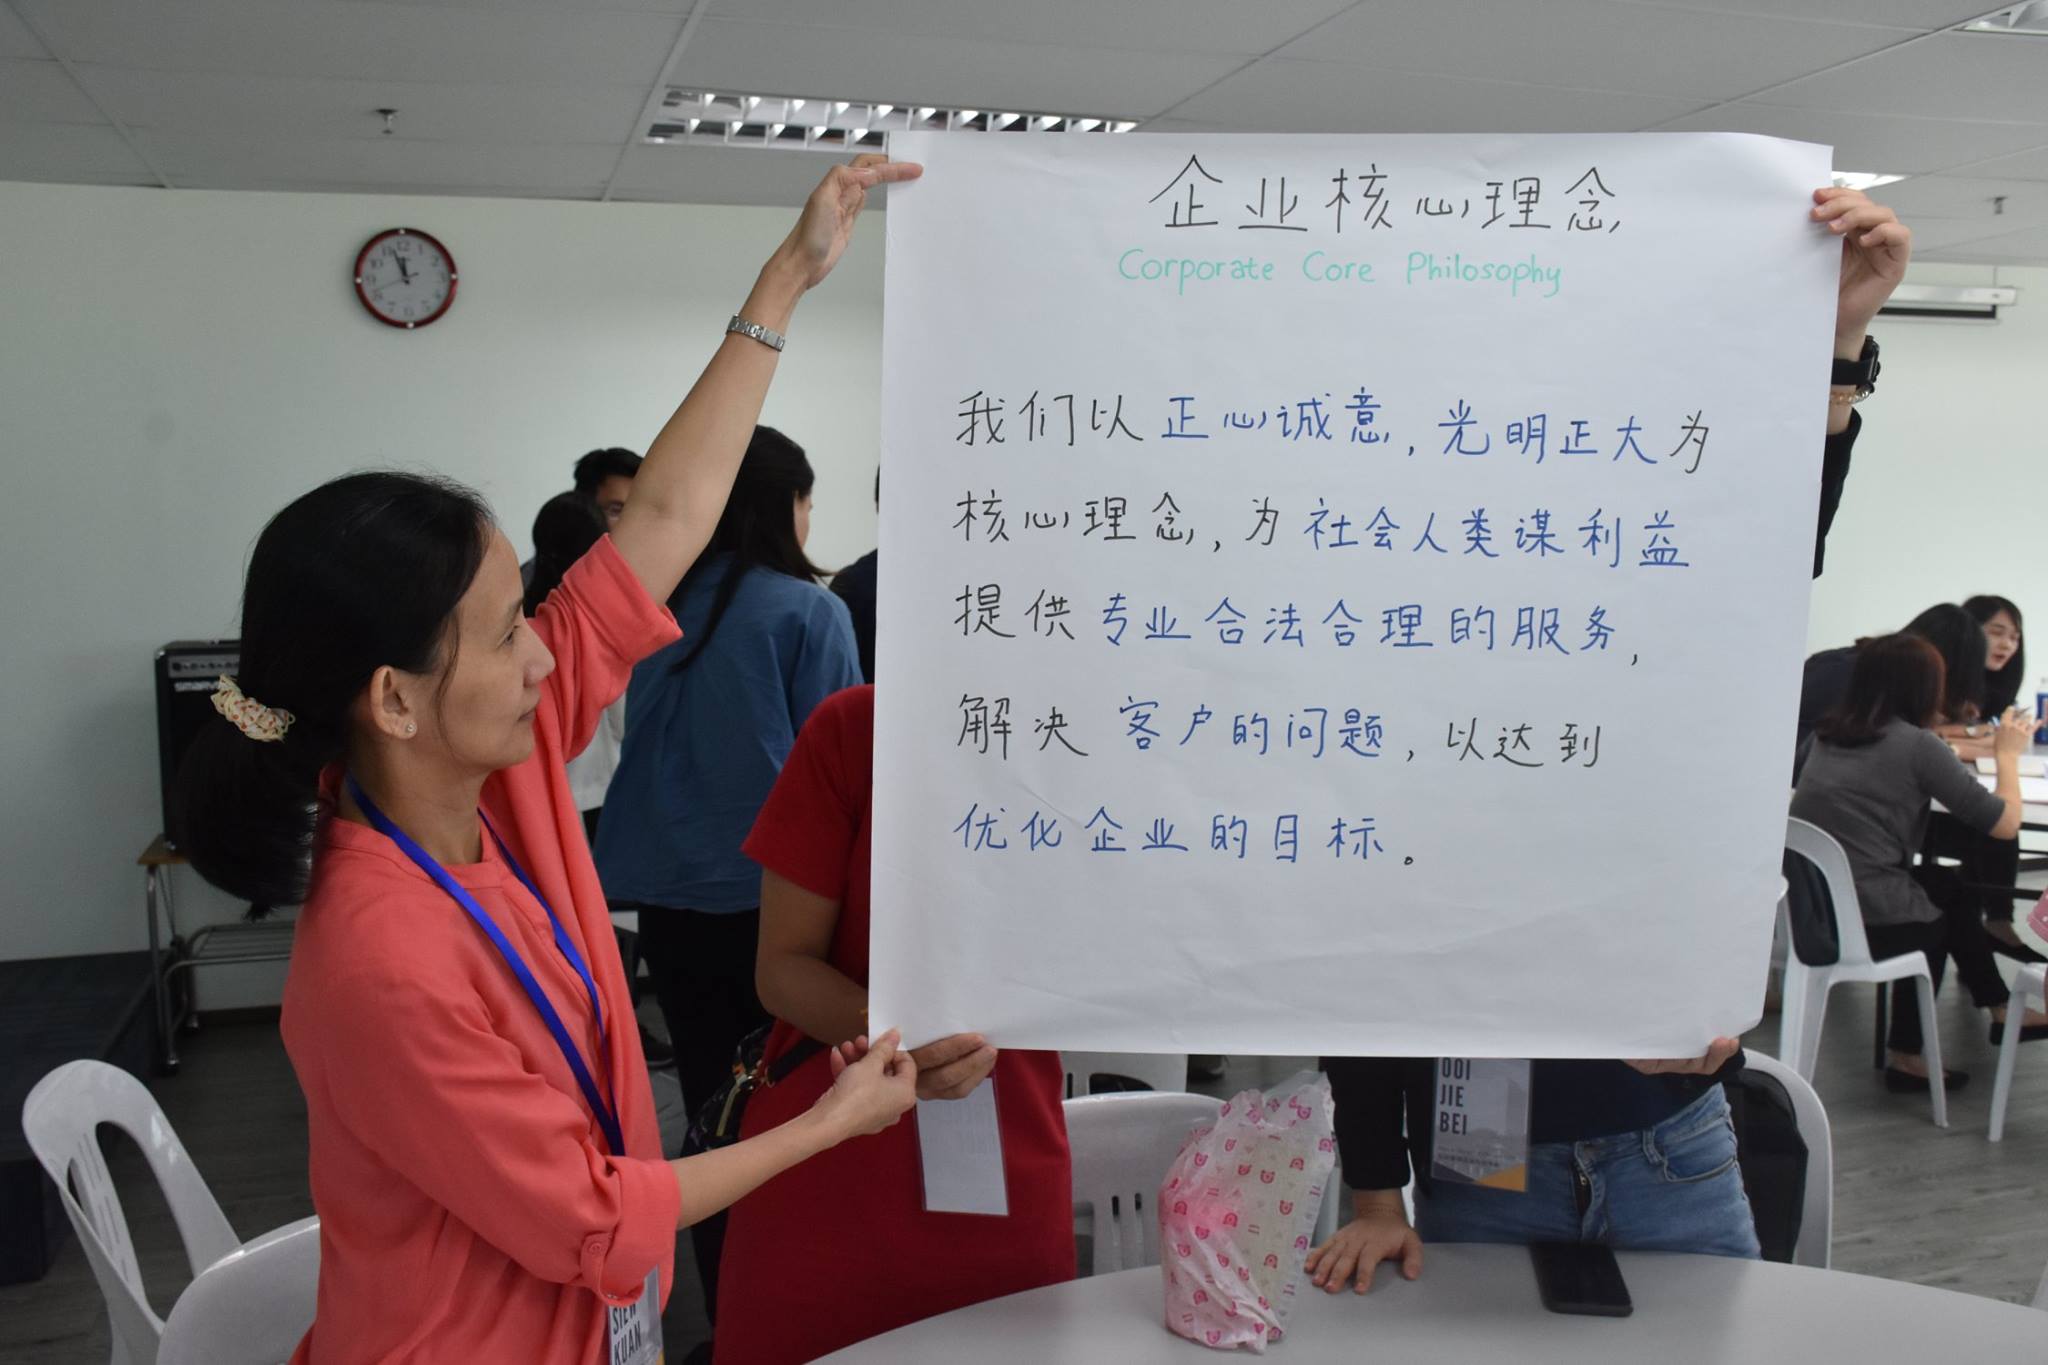 企业核心理念
Corporate Core Philosophy
我们以正心诚意，光明正大为
核心理念，为社会人类谋利益
提供专业合法合理的服务，
解决客户的问题，以达到
优化企业的目标。
OOI
JIE
BEI
SIEW
KUAN